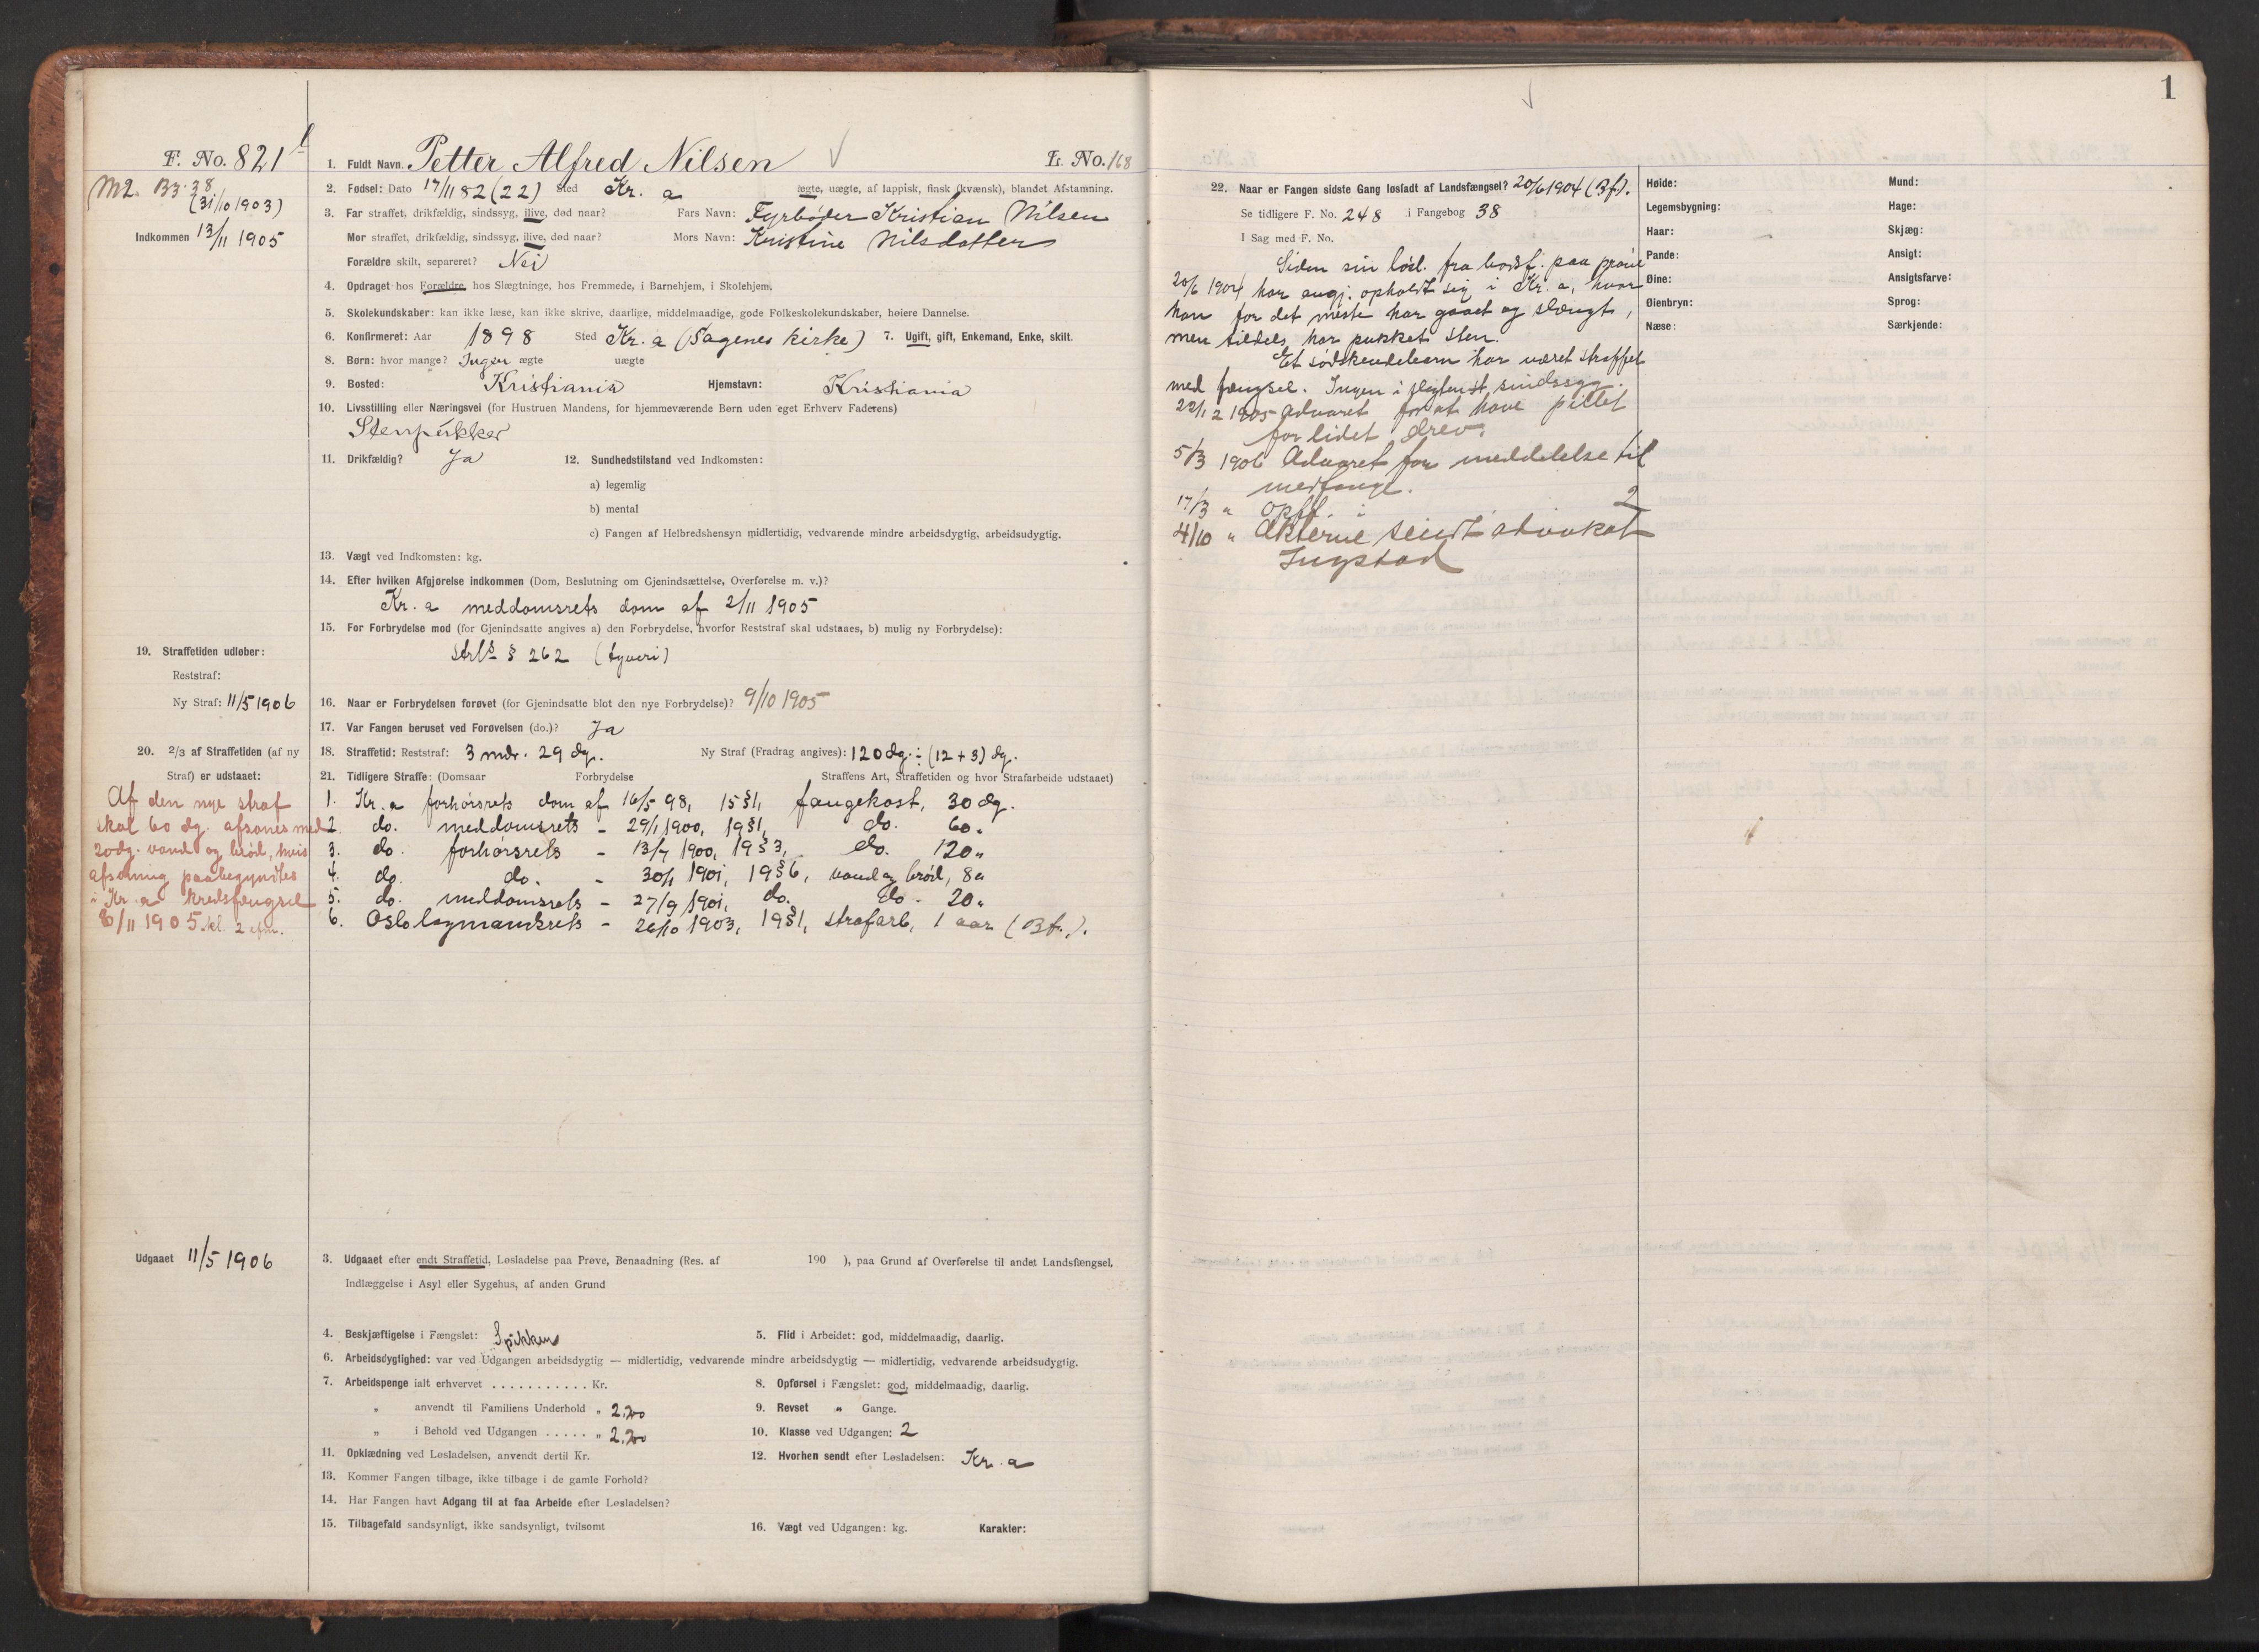 F. No. 821
M2. B3. 38
(31/10 1903)
Indkommen 13/11 1905
1. Fuldt Navn. Petter Alfred Nilsen L. No. 168
2. Fødsel: Dato 17/11 82 (22) Sted Kr. a ægte, uægte, af lappisk, finsk (kvænsk), blandet Afstamning.
3. Far straffet, drikfældig, sindssyg, ilive, død naar? Fars Navn: Fyrbøder Kristian Nilsen
Mor straffet, drikfældig, sindssyg, ilive, død naar? Mors Navn: Kristine Nilsdatter
Forældre skilt, separeret? Nei
4. Opdraget hos Forældre, hos Slægtninge, hos Fremmede, i Barnehjem, i Skolehjem.
5. Skolekundskaber: kan ikke læse, kan ikke skrive, daarlige, middelmaadige, gode Folkeskolekundskaber, høiere Dannelse.
6. Konfirmeret: Aar 1898 Sted Kr. a (Sagenes kirke) 7. Ugift, gift, Enkemand, Enke, skilt.
8. Børn: hvor mange? Ingen ægte uægte
9. Bosted: Kristiania Hjemstavn: Kristiania
10. Livsstilling eller Næringsvei (for Hustruen Mandens, for hjemmeværende Børn uden eget Erhverv Faderens)
Stenpukker
11. Drikfældig? Ja 12. Sundhedstilstand ved Indkomsten:
a) legemlig
b) mental
c) Fangen af Helbredshensyn midlertidig, vedvarende mindre arbeidsdygtig, arbeidsudygtig.
13. Vægt ved Indkomsten: kg.
14. Efter hvilken Afgjørelse indkommen (Dom, Beslutning om Gjenindsættelse, Overførelse m. v.)?
Kr. a meddomsrets dom af 2/11 1905
15. For Forbrydelse mod (for Gjenindsatte angives a) den Forbrydelse, hvorfor Reststraf skal udstaaes, b) mulig ny Forbrydelse):
strls § 262 (tyveri)
19. Straffetiden udløber:
Reststraf:
Ny Straf: 11/5 1906
16. Naar er Forbrydelsen forøvet (for Gjenindsatte blot den nye Forbrydelse)? 9/10 1905
17. Var Fangen beruset ved Forøvelsen (do.)? Ja
20. 2/3 af Straffetiden (af ny
Straf) er udstaaet:
18. Straffetid: Reststraf: 3 mdr. 29 dg. Ny Straf (Fradrag angives): 120 dg. ÷ (12 + 3) dg.
21. Tidligere Straffe: (Domsaar Forbrydelse Straffens Art, Straffetiden og hvor Strafarbeide udstaaet)
Af den nye straf
skal 60 dg. afsones med
20 dg. vand og brød, hvis
afsoning paabegyndtes
i Kr. a kredsfængsel
8/11 1905 kl. 2 efm.
1. Kr. a forhørsrets dom af 16/5 98, 15 § 1, fangekost, 30 dg.
2. do. meddomsrets - 29/1 1900, 19 § 1, do. 60 "
3. do. forhørsrets - 13/7 1900, 19 § 3, do. 120 "
4. do. do. - 30/1 1901, 19 § 6, vand og brød, 8 "
5. do. meddomsrets - 27/9 1901, do. do. 20 "
6. Oslo lagmandsrets - 26/10 1903, 19 § 1, strafarb, 1 aar (Bf.).
Udgaaet 11/5 1906
3. Udgaaet efter endt Straffetid, Løsladelse paa Prøve, Benaadning (Res. af 190 ), paa Grund af Overførelse til andet Landsfængsel,
Indlæggelse i Asyl eller Sygehus, af anden Grund
4. Beskjæftigelse i Fængslet: Spikken 5. Flid i Arbeidet: god, middelmaadig, daarlig.
6. Arbeidsdygtighed: var ved Udgangen arbeidsdygtig — midlertidig, vedvarende mindre arbeidsdygtig — midlertidig, vedvarende arbeidsudygtig.
7. Arbeidspenge ialt erhvervet . . . . . . . . . . . Kr. 8. Opførsel i Fængslet: god, middelmaadig, daarlig.
" anvendt til Familiens Underhold " 2.20 9. Revset " Gange.
" i Behold ved Udgangen . . . . . " 2.20 10. Klasse ved Udgangen: 2
11. Opklædning ved Løsladelsen, anvendt dertil Kr. 12. Hvorhen sendt efter Løsladelsen: Kr. a
13. Kommer Fangen tilbage, ikke tilbage i de gamle Forhold?
14. Har Fangen havt Adgang til at faa Arbeide efter Løsladelsen?
15. Tilbagefald sandsynligt, ikke sandsynligt, tvilsomt 16. Vægt ved Udgangen: kg. Karakter:
1
22. Naar er Fangen sidste Gang løsladt af Landsfængsel? 20/6 1904 (Bf).
Se tidligere F. No. 248 i Fangebog 38
I Sag med F. No.
Siden sin løsl. fra bodsf. paa prøve
20/6 1904 har angj. opholdt sig i Kr. a, hvor
han for det meste har gaaet og slængt,
men tildels har pukket sten.
Et sødskendebarn har været straffet
med fængsel. Ingen i slegten st. sindssyg.
22/12 1905 Advaret for at have pillet
for lidet drev.
5/3 1906 Advaret for meddelelse til
medfange.
17/3 " opfl. i 2
4/10 " Akterne sendt advokat
Ingstad
Høide: Mund:
Legemsbygning: Hage:
Haar: Skjæg:
Pande: Ansigt:
Øine: Ansigtsfarve:
Øienbryn: Sprog:
Næse: Særkjende: